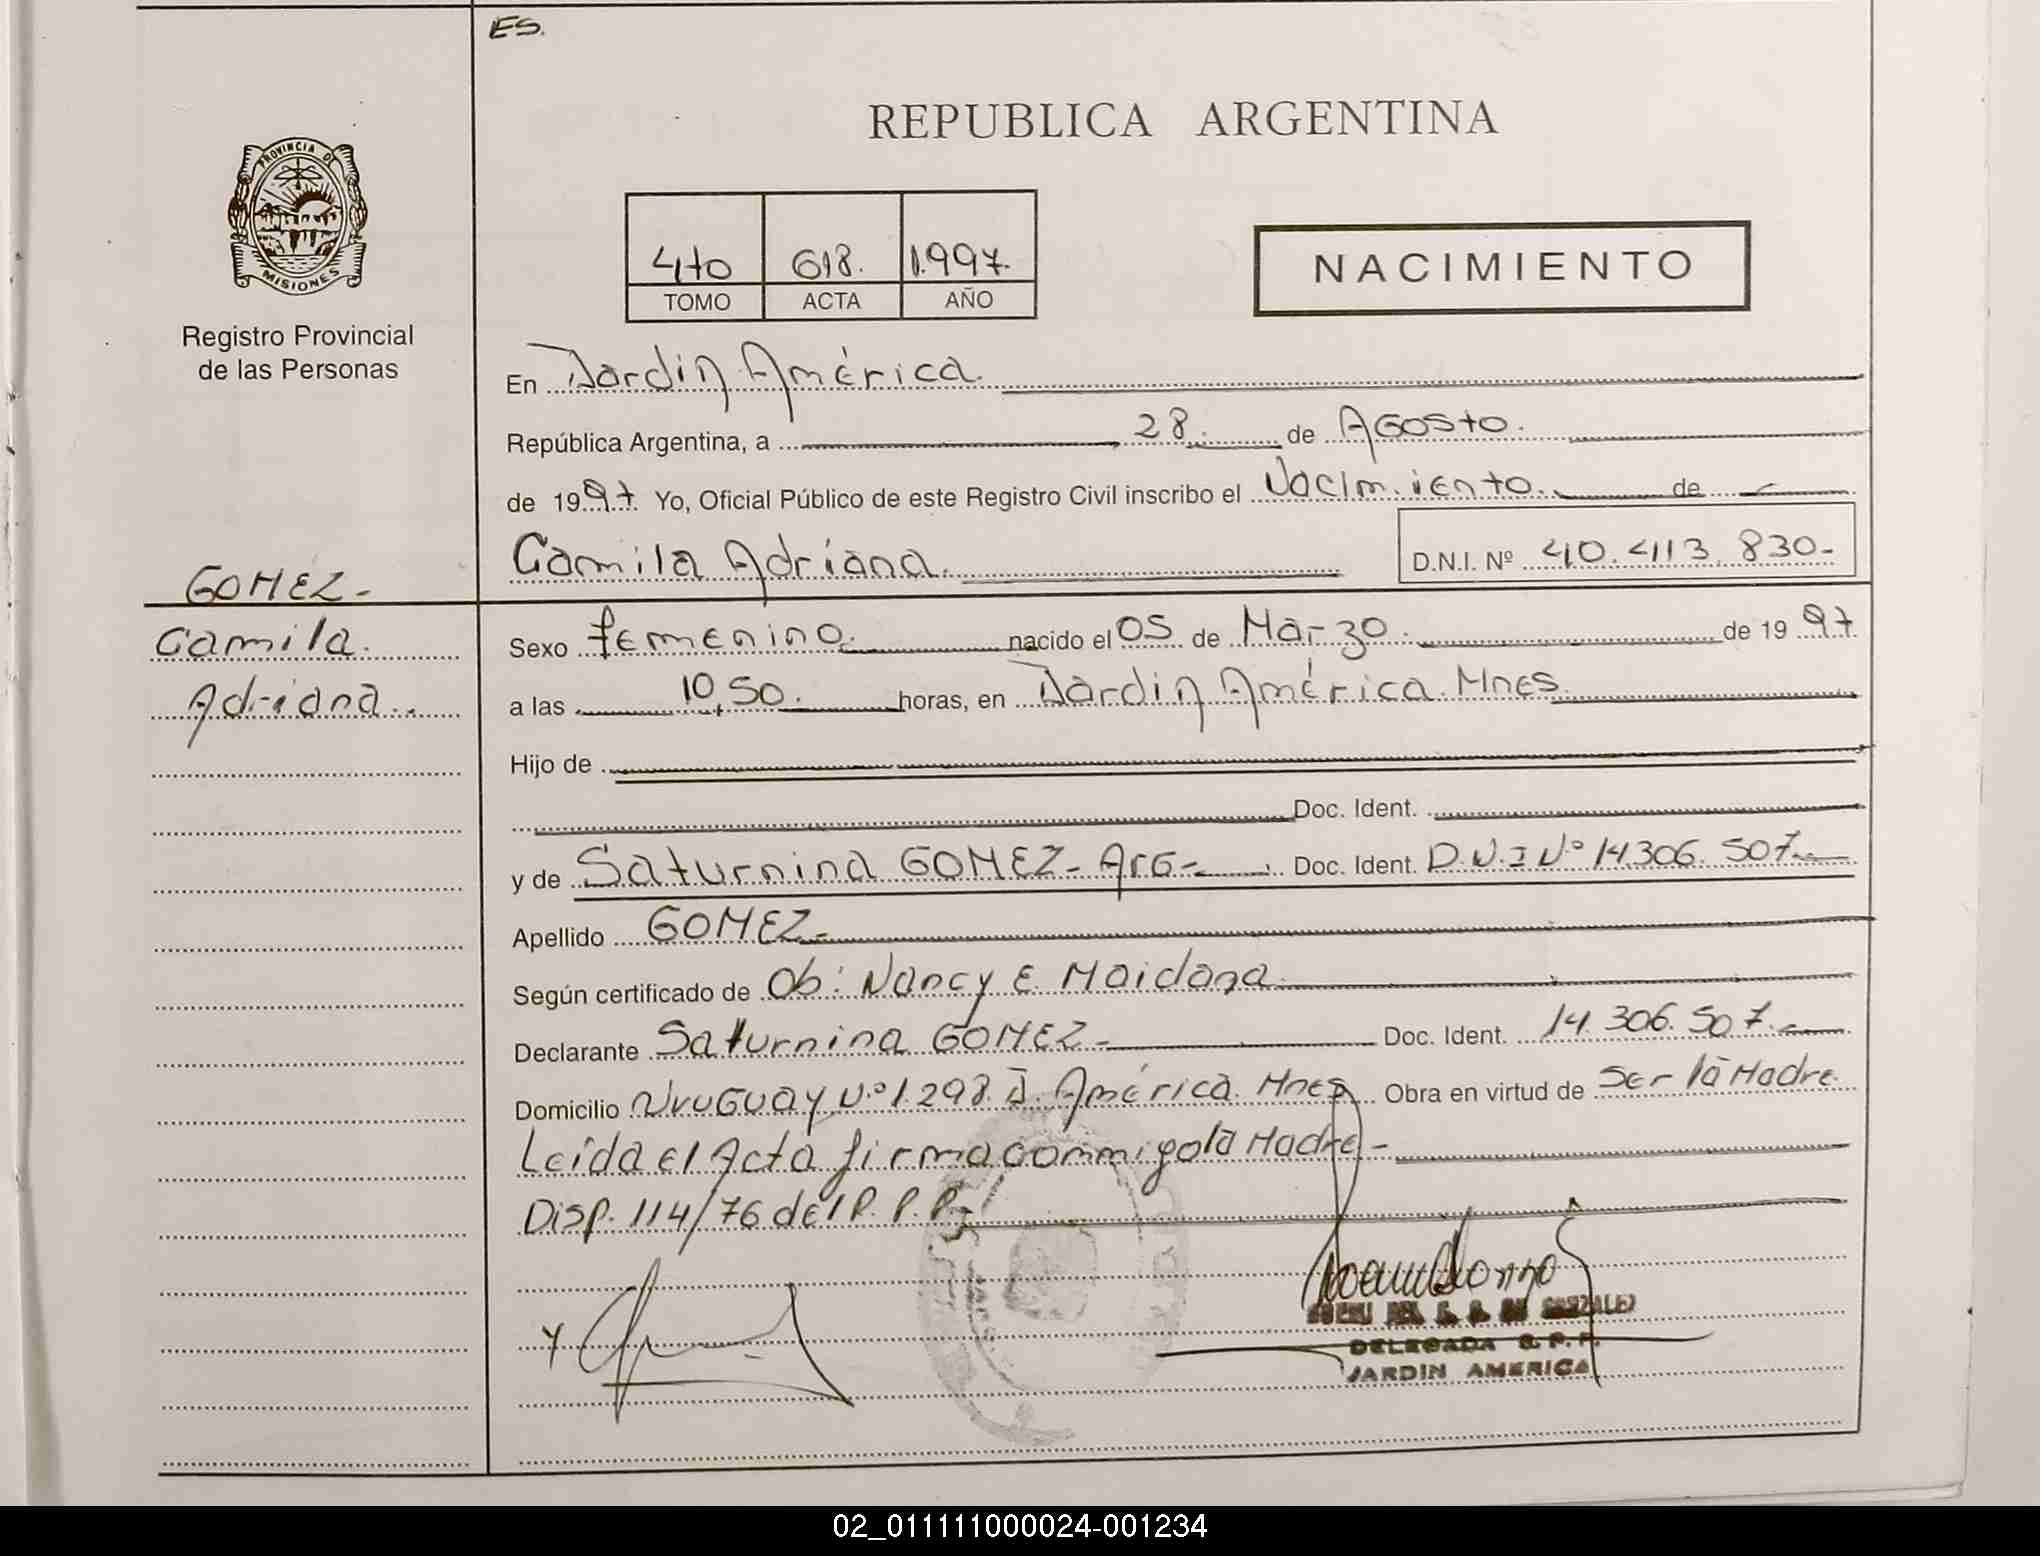 ES.
REPUBLICA ARGENTINA
PROVINCIA DE
MISIONES
Registro Provincial
de las Personas
4to 618. 1.997.
TOMO ACTA AÑO
NACIMIENTO
En Jardin América.
República Argentina, a 28. de AGosto.
de 1997. Yo, Oficial Público de este Registro Civil inscribo el Nacimiento. de
Camila Adriana. D.N.I. Nº 40.413.830-
GOMEZ-
Camila.
Adriana..
Sexo femenino. nacido el 05 de Marzo. de 1997.
a las 10,50. horas, en Jardin América. Mnes.
Hijo de
Doc. Ident.
y de Saturnina GOMEZ- ArG- Doc. Ident. D.N.I Nº 14.306.507.
Apellido GOMEZ-
Según certificado de Ob: Nancy E. Maidana.
Declarante Saturnina GOMEZ- Doc. Ident. 14.306.507.
Domicilio UruGuay N.º 1.298. J. América. Mnes. Obra en virtud de Ser la Madre.
Leída el Acta firma conmigo la Madre-
Disp. 114/76 del R.P.P.
DE GONZALEZ
DELEGADA R.P.P.
JARDIN AMERICA
02_011111000024-001234